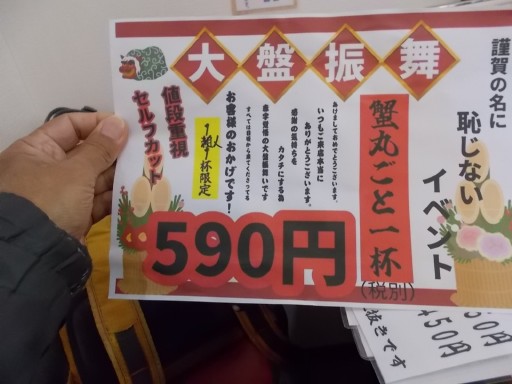 大盤振舞
謹賀の名に
恥じない
イベント
蟹丸ごと一杯
あけましておめでとうございます。
いつもご来店本当に
ありがとうございます。
感謝の気持ちを
カタチにする為
赤字覚悟の大盤振舞いです
すべては皆様から来てくださってる
お客様のおかげです!
1組1杯限定
値段重視
セルフカット
590円
(税別)
抜きです
450円
50円